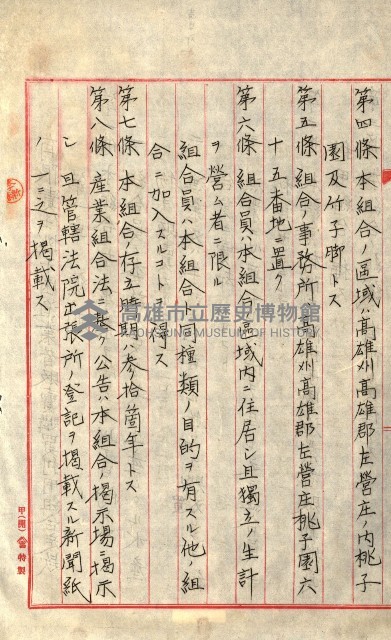 第四條 本組合ノ區域ハ高雄州高雄郡左營庄ノ內桃子
園及竹子脚トス
第五條 組合ノ事務所ハ高雄州高雄郡左營庄桃子園六
十五番地ニ置ク
第六條 組合員ハ本組合ノ區域內ニ住居シ且獨立ノ生計
ヲ營ム者ニ限ル
組合員ハ本組合ト同種類ノ目的ヲ有スル他ノ組
合ニ加入スルコトヲ得ス
第七條 本組合ノ存立時期ハ參拾箇年トス
第八條 產業組合法ニ基ク公告ハ本組合ノ揭示場ニ揭示
シ且管轄法院出張所ノ登記ヲ揭載スル新聞紙
ノ一ニ之ヲ揭載ス
高雄市立歷史博物館
KAOHSIUNG MUSEUM OF HISTORY